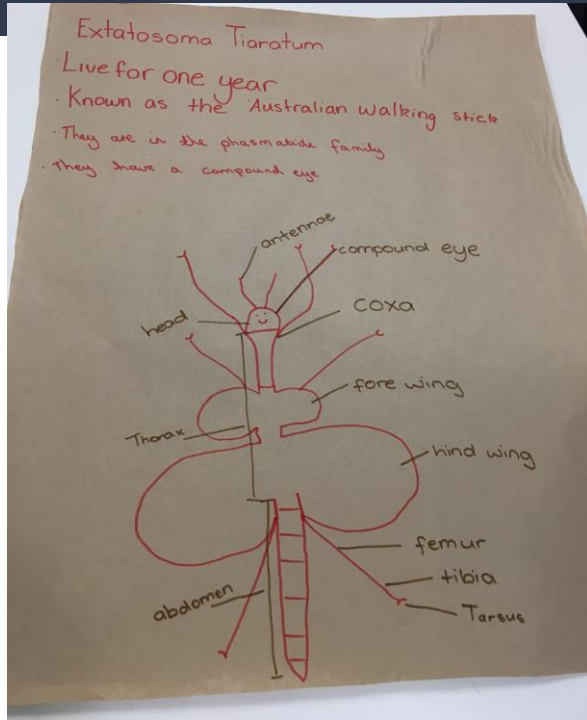 Extatosoma Tiaratum
Live for one year
· Known as the Australian walking stick
· They are in the phasmatide family
· They have a compound eye
antennae
compound eye
head
coxa
fore wing
Thorax
hind wing
femur
tibia
abdomen
Tarsus